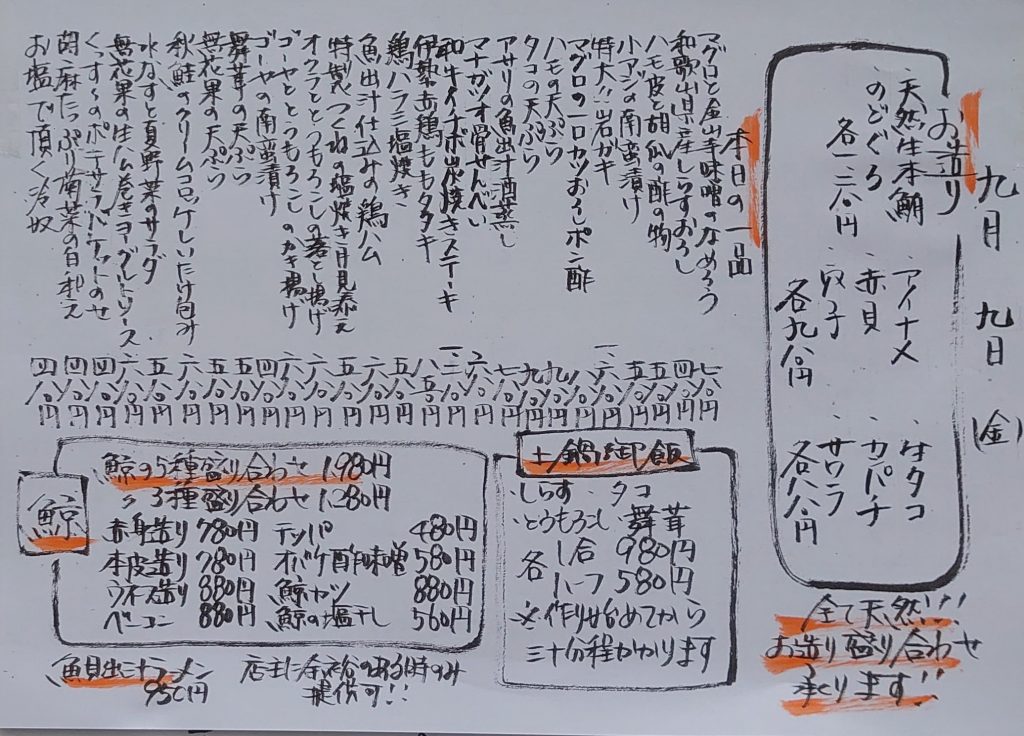 九月 九日 (金)
お造り
・天然生本鮪
・のどぐろ
各一二八〇円
・アイナメ
・赤貝
・穴子
各九八〇円
・生タコ
・カンパチ
・サワラ
各八八〇円
全て天然!!!
お造り盛り合わせ
承ります!!
本日の一品
マグロと金山寺味噌のなめろう 七八〇円
和歌山県産しらすおろし 四八〇円
ハモ皮と胡瓜の酢の物 五八〇円
小アジの南蛮漬け 五八〇円
特大!!岩ガキ
マグロの一口カツおろしポン酢
ハモの天ぷら 九八〇円
タコの天ぷら 九八〇円
アサリの魚出汁酒蒸し 七八〇円
マナガツオ骨せんべい
和牛イチボ炭焼きステーキ
伊勢赤鶏ももタタキ 八五〇円
鶏ハラミ塩焼き 五八〇円
魚出汁仕込みの鶏ハム 六八〇円
特製つくねの塩焼き月見添え 五八〇円
オクラととうもろこしの落とし揚げ 六八〇円
ゴーヤととうもろこしのかき揚げ 六八〇円
ゴーヤの南蛮漬け 四八〇円
舞茸の天ぷら 五八〇円
無花果の天ぷら 六八〇円
秋鮭のクリームコロッケしいたけ包み 六八〇円
水なすと夏野菜のサラダ 五八〇円
無花果の生ハム巻きヨーグルトソース 六八〇円
くっす〜のポテサラバゲットのせ 四八〇円
胡麻たっぷり菊菜の白和え 四八〇円
お塩で頂く冷奴 四八〇円
土鍋御飯
・しらす ・タコ
・とうもろこし ・舞茸
各 1合 980円
ハーフ 580円
※作り始めてから
三十分程かかります
鯨
鯨の5種盛り合わせ 1,980円
〃 3種盛り合わせ 1,280円
赤身造り 780円 テッパ 480円
本皮造り 780円 オバケ酢味噌 580円
ウネス造り 880円 鯨カツ 880円
ベーコン 880円 鯨の塩干し 560円
魚貝出汁ラーメン
950円
店主に余裕のある時のみ
提供可!!